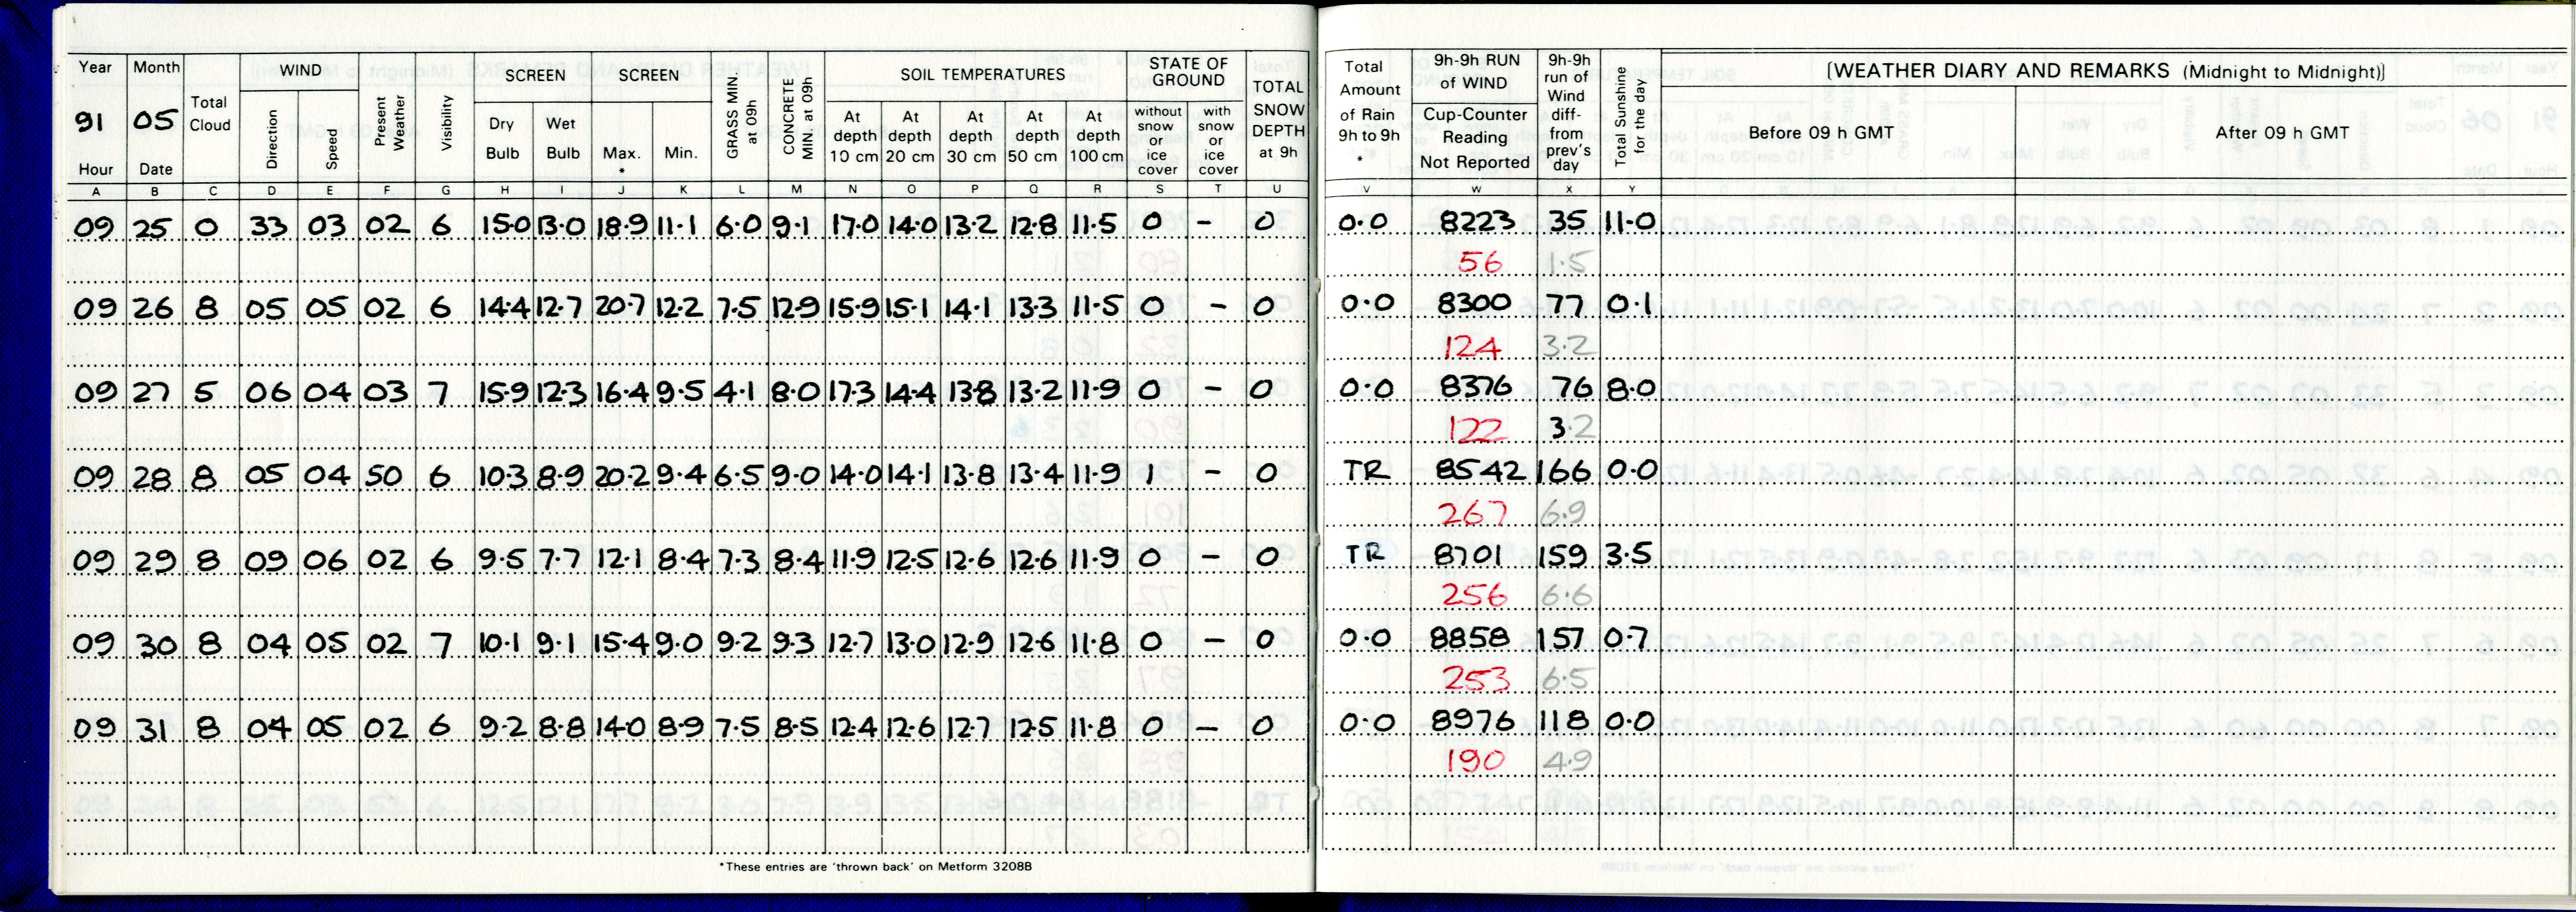 Year Month Total Cloud WIND Present Weather Visibility SCREEN SCREEN GRASS MIN at 09h CONCRETE MIN at 09h SOIL TEMPERATURES STATE OF GROUND TOTAL SNOW DEPTH at 9h
91 05 Direction Speed Dry Bulb Wet Bulb Max. * Min. At depth 10 cm At depth 20 cm At depth 30 cm At depth 50 cm At depth 100 cm without snow or ice cover with snow or ice cover
Hour Date
A B C D E F G H I J K L M N O P Q R S T U
09 25 0 33 03 02 6 15.0 13.0 18.9 11.1 6.0 9.1 17.0 14.0 13.2 12.8 11.5 0 - 0
09 26 8 05 05 02 6 14.4 12.7 20.7 12.2 7.5 12.9 15.9 15.1 14.1 13.3 11.5 0 - 0
09 27 5 06 04 03 7 15.9 12.3 16.4 9.5 4.1 8.0 17.3 14.4 13.8 13.2 11.9 0 - 0
09 28 8 05 04 50 6 10.3 8.9 20.2 9.4 6.5 9.0 14.0 14.1 13.8 13.4 11.9 1 - 0
09 29 8 09 06 02 6 9.5 7.7 12.1 8.4 7.3 8.4 11.9 12.5 12.6 12.6 11.9 0 - 0
09 30 8 04 05 02 7 10.1 9.1 15.4 9.0 9.2 9.3 12.7 13.0 12.9 12.6 11.8 0 - 0
09 31 8 04 05 02 6 9.2 8.8 14.0 8.9 7.5 8.5 12.4 12.6 12.7 12.5 11.8 0 - 0
*These entries are 'thrown back' on Metform 3208B
Total Amount of Rain 9h to 9h * 9h-9h RUN of WIND Cup-Counter Reading Not Reported 9h-9h run of Wind diff- from prev's day Total Sunshine for the day [WEATHER DIARY AND REMARKS (Midnight to Midnight)]
Before 09 h GMT After 09 h GMT
V W X Y
0.0 8223 35 11.0
56 1.5
0.0 8300 77 0.1
124 3.2
0.0 8376 76 8.0
122 3.2
TR 8542 166 0.0
267 6.9
TR 8701 159 3.5
256 6.6
0.0 8858 157 0.7
253 6.5
0.0 8976 118 0.0
190 4.9